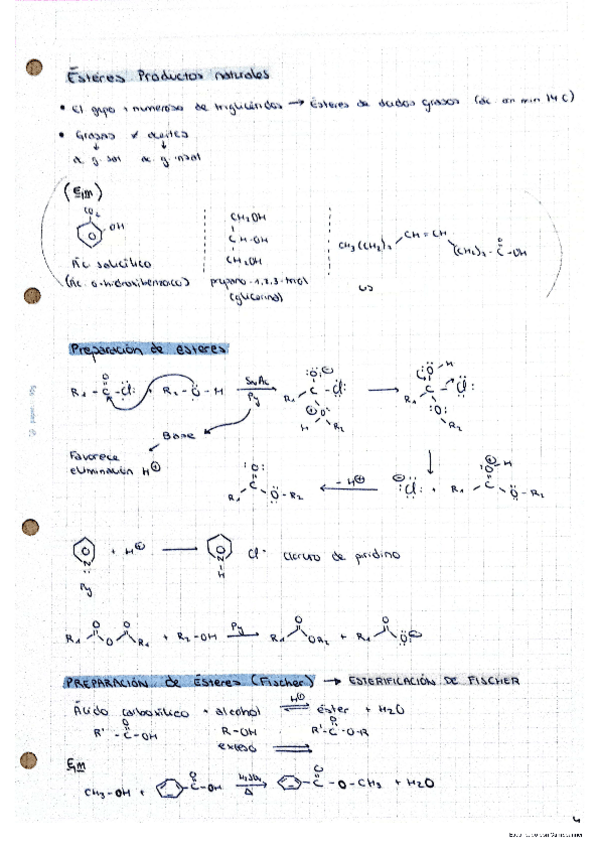 Ésteres Productos naturales
• El grupo + numeroso de triglicéridos → Ésteres de ácidos grasos (ác. con min 14 C)
• Grasas y aceites
↓ ↓
a. g. sat a. g. insat
(Ejm)
CO2
OH
Ác salicílico
(Ác. o-hidroxibenzoico)
CH2OH
CH-OH
CH2OH
propano-1,2,3-triol
(glicerina)
CH3(CH2)7 CH=CH (CH2)7-C-OH
O
Preparación de ésteres
R1-C-Cl: + R2-O-H SNAc Py R1 C Cl: → R1 C Cl:
Base
Favorece
eliminación H⊕
R1 C O-R2 ← -H⊕ :Cl: + R1 C O-R2
N + H⊕ → N H Cl⁻ cloruro de piridino
Py
R1 O R1 + R2-OH Py → R1 OR2 + R1 O
PREPARACIÓN de Ésteres (Fischer) → ESTERIFICACIÓN DE FISCHER
Ácido carboxílico + alcohol H⊕ ⇌ éster + H2O
R'-C-OH R-OH R'-C-O-R
exceso
Ejm
CH3-OH + C-OH H2SO4 Δ → C-O-CH3 + H2O
4